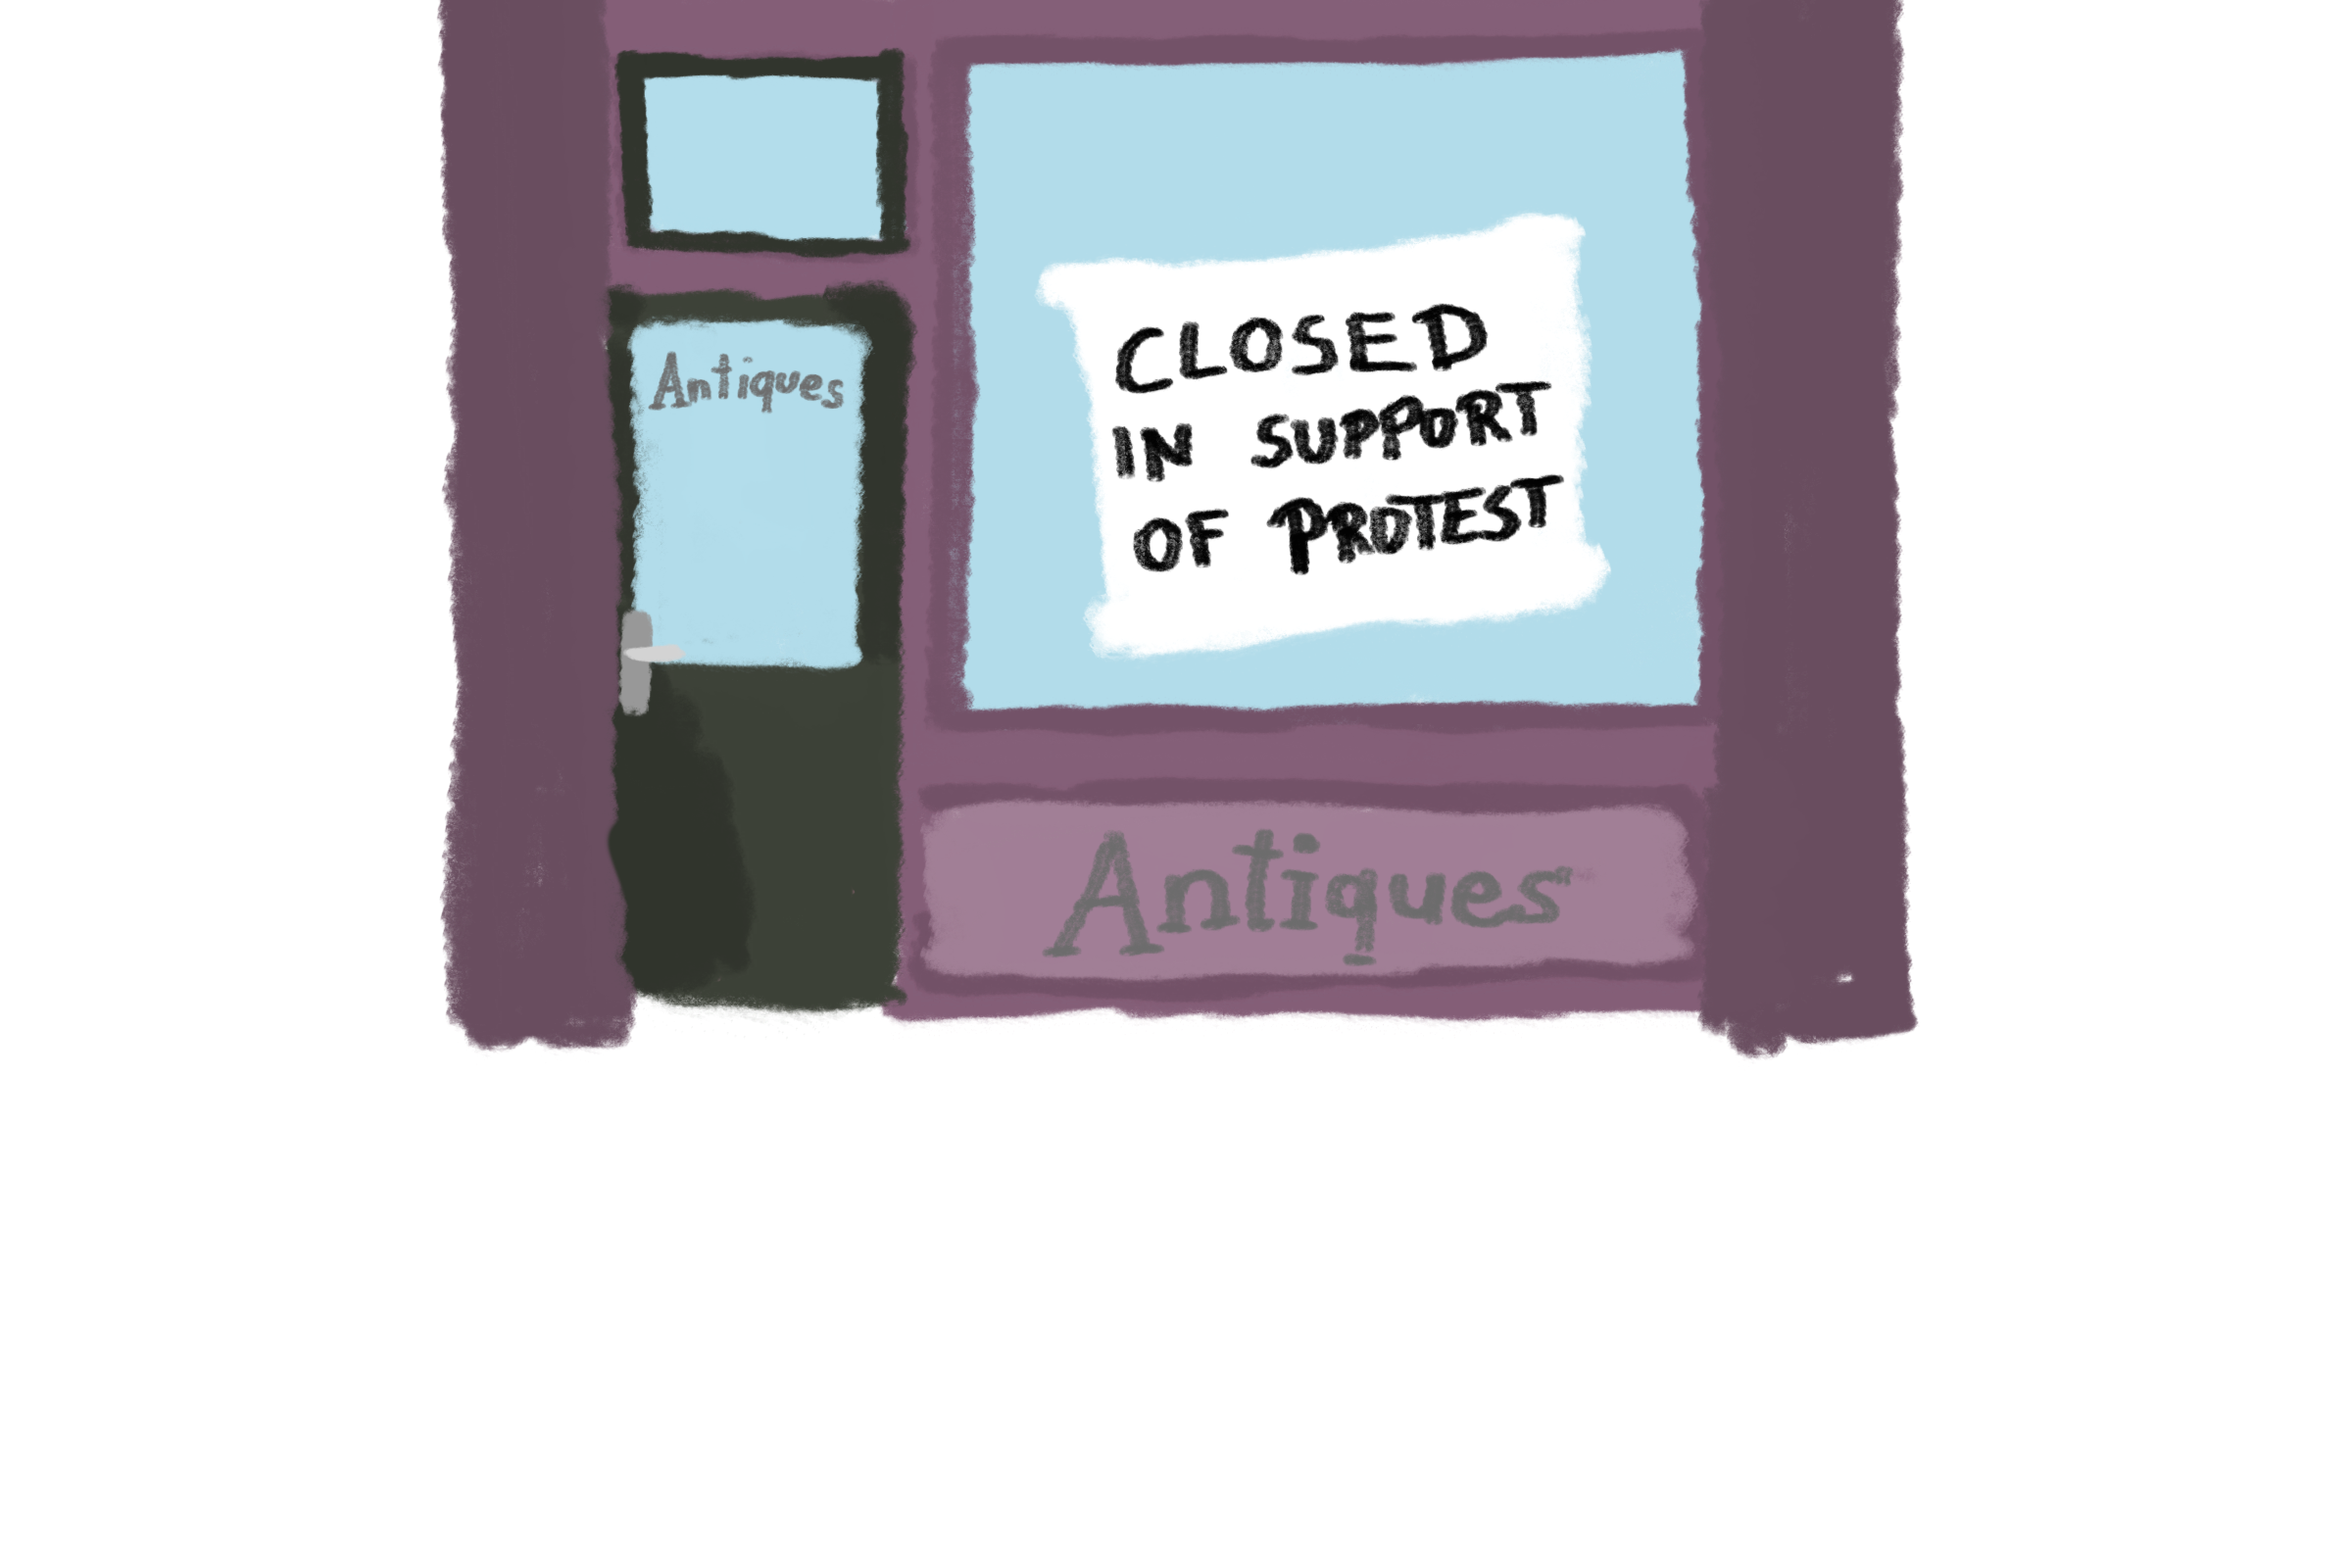 Antiques
CLOSED
IN SUPPORT
OF PROTEST
Antiques